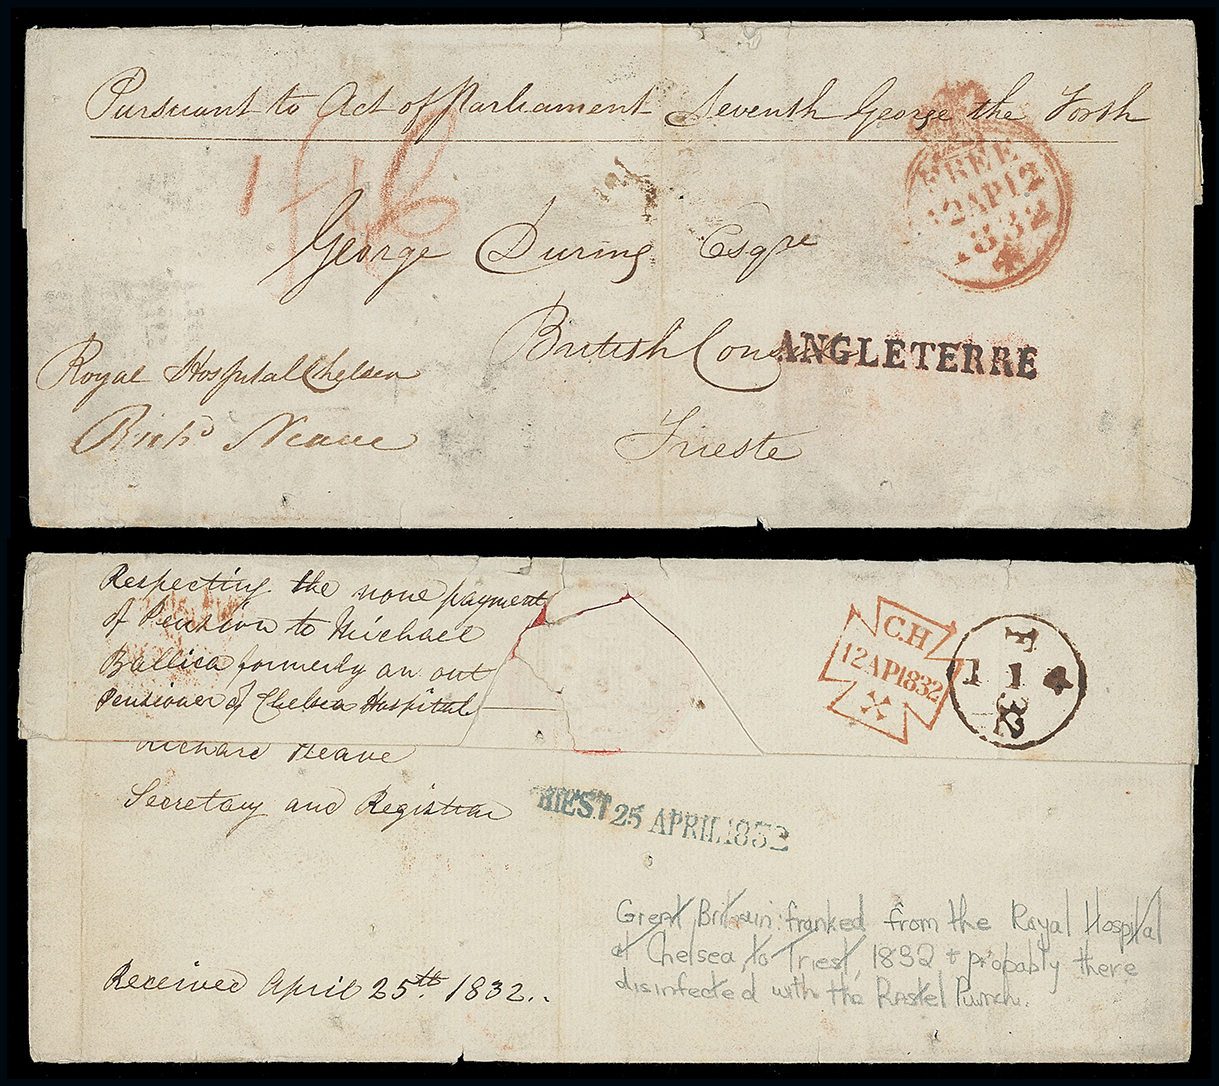 Pursuant to Act of Parliament Seventh George the Forth
FREE
12AP12
1832
George During Esqre
British
ANGLETERRE
Royal Hospital Chelsea
Richd Neave
Trieste
Respecting the none payment
of Pension to Michael
Ballica formerly an out
Pensioner of Chelsea Hospital
Richard Neave
Secretary and Registrar
C.H
12AP1832
F
1 1 4
32
RIEST 25 APRIL.1832
Great Britain: franked from the Royal Hospital
at Chelsea, to Triest, 1832 & probably there
disinfected with the Rastel Punch.
Received April 25th. 1832..